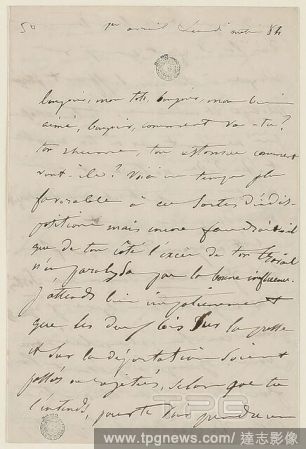 50
1er avril Lundi matin 8h
bonjour, mon toto, bonjour, mon bien
aimé, bonjour, comment vas-tu?
ton rhume, ton estomac comment
vont-ils? Voici un temps plus
favorable à ces sortes d'indis-
positions mais encore faudrait-il
que de ton côté l'excès de ton travail
n'en paralysa pas la bonne influence.
J'attends bien impatiemment
que les deux lois sur la presse
et sur la déportation soient
votées ou rejetées, selon que tu
l'entends, pour te voir prendre un
TPG
www.tpgnews.com / 達志影像